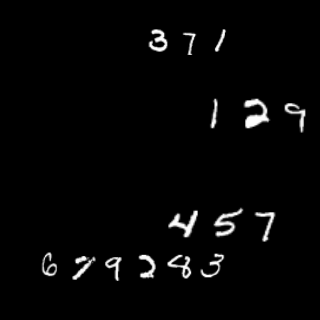 371
129
457
679283